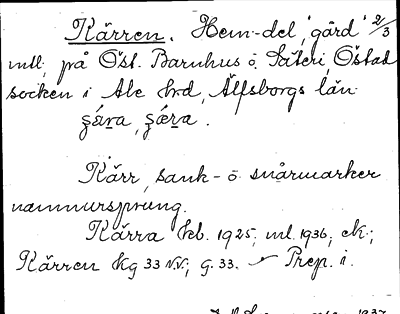 Kärren. Hem-del, "gård" 2/3
mtl, på Öst. Barnhus o. Säteri, Östad
socken i Ale hrd, Älfsborgs län
şǽra, şǽra.
Kärr, sank- o snårmarker
namnursprung.
Kärra kb. 1925; ml. 1936; ek;
Kärren Kg 33 N.V.; G. 33. – Prep. i.
1937